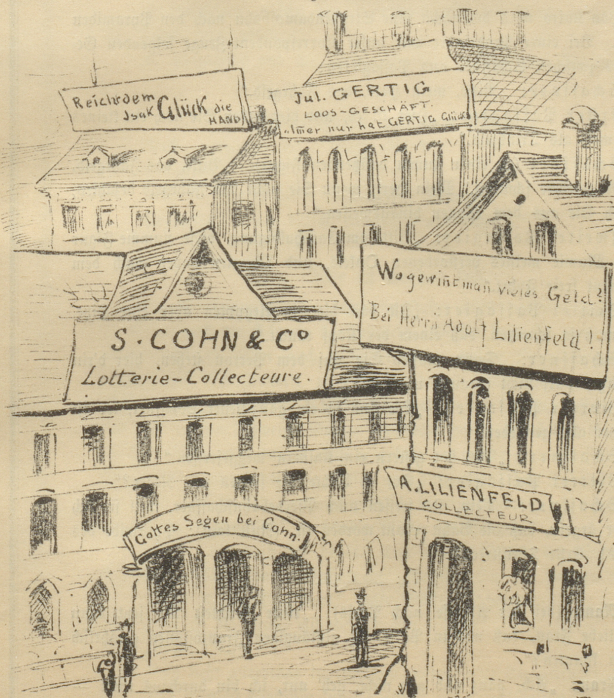 Reich dem
Isak Glück die
HAND
Jul. GERTIG
LOOS-GESCHÄFT.
Imer nur hat GERTIG Glück
Wo gewint man vieles Geld?
Bei Herrn Adolf Lilienfeld!
S. COHN & Co
Lotterie-Collecteure.
A. LILIENFELD
COLLECTEUR
Gottes Segen bei Cohn.